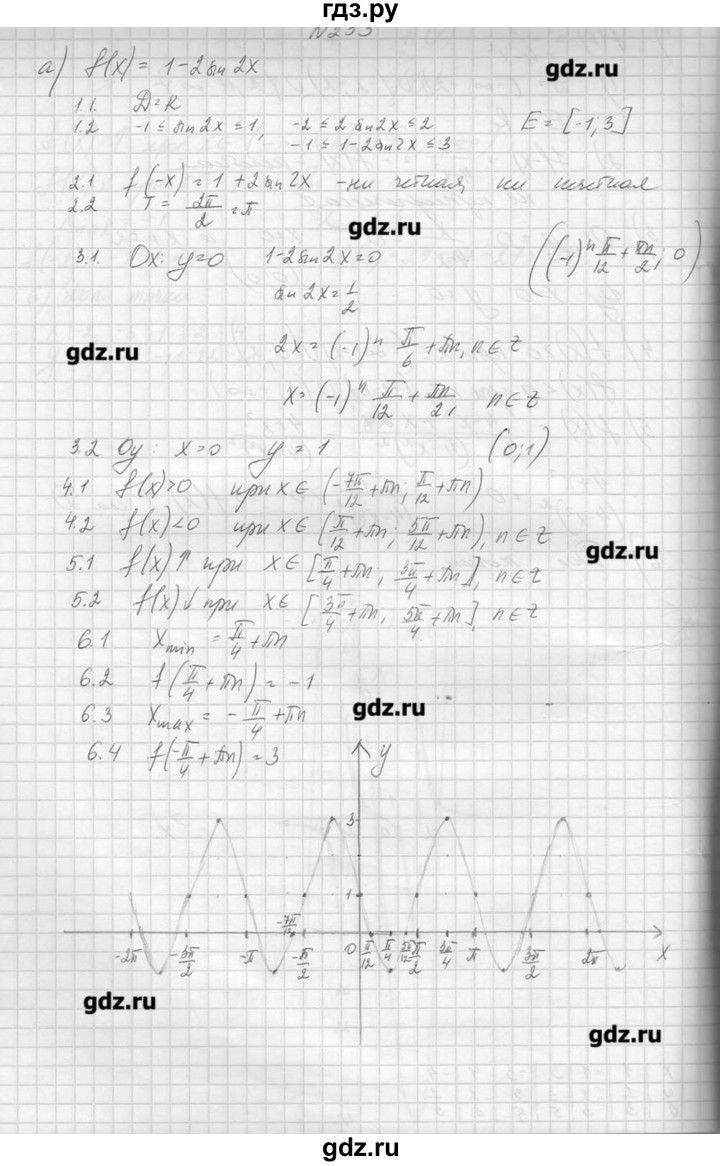 гдз.ру
N 255
gdz.ru
а) f(x) = 1-2sin2x
1.1. D=R
1.2 -1 ≤ sin2x ≤ 1, -2 ≤ 2sin2x ≤ 2 E = [-1; 3]
-1 ≤ 1-2sin2x ≤ 3
2.1 f(-x) = 1+2sin2x - ни четная, ни нечетная
2.2 T = 2π/2 = π
gdz.ru
3.1. Ox: y=0 1-2sin2x=0 ((-1)ⁿ π/12 + πn/2; 0)
sin2x = 1/2
gdz.ru
2x = (-1)ⁿ π/6 + πn, n∈Z
x = (-1)ⁿ π/12 + πn/2, n∈Z
3.2 Oy: x=0 y=1 (0;1)
4.1 f(x)>0 при x∈(-7π/12+πn; π/12+πn)
4.2 f(x)<0 при x∈(π/12+πn; 5π/12+πn), n∈Z
gdz.ru
5.1 f(x)↑ при x∈[π/4+πn; 3π/4+πn], n∈Z
5.2 f(x)↓ при x∈[3π/4+πn; 5π/4+πn] n∈Z
6.1 xmin = π/4+πn
6.2 f(π/4+πn) = -1
6.3 xmax = -π/4+πn
gdz.ru
6.4 f(-π/4+πn) = 3
y
3
1
-7π/12
-2π -3π/2 -π -π/2 0 π/12 π/4 5π/12 π/2 3π/4 π 3π/2 2π x
gdz.ru
gdz.ru
gdz.ru